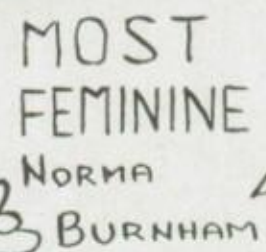 MOST
FEMININE
NORMA
BURNHAM